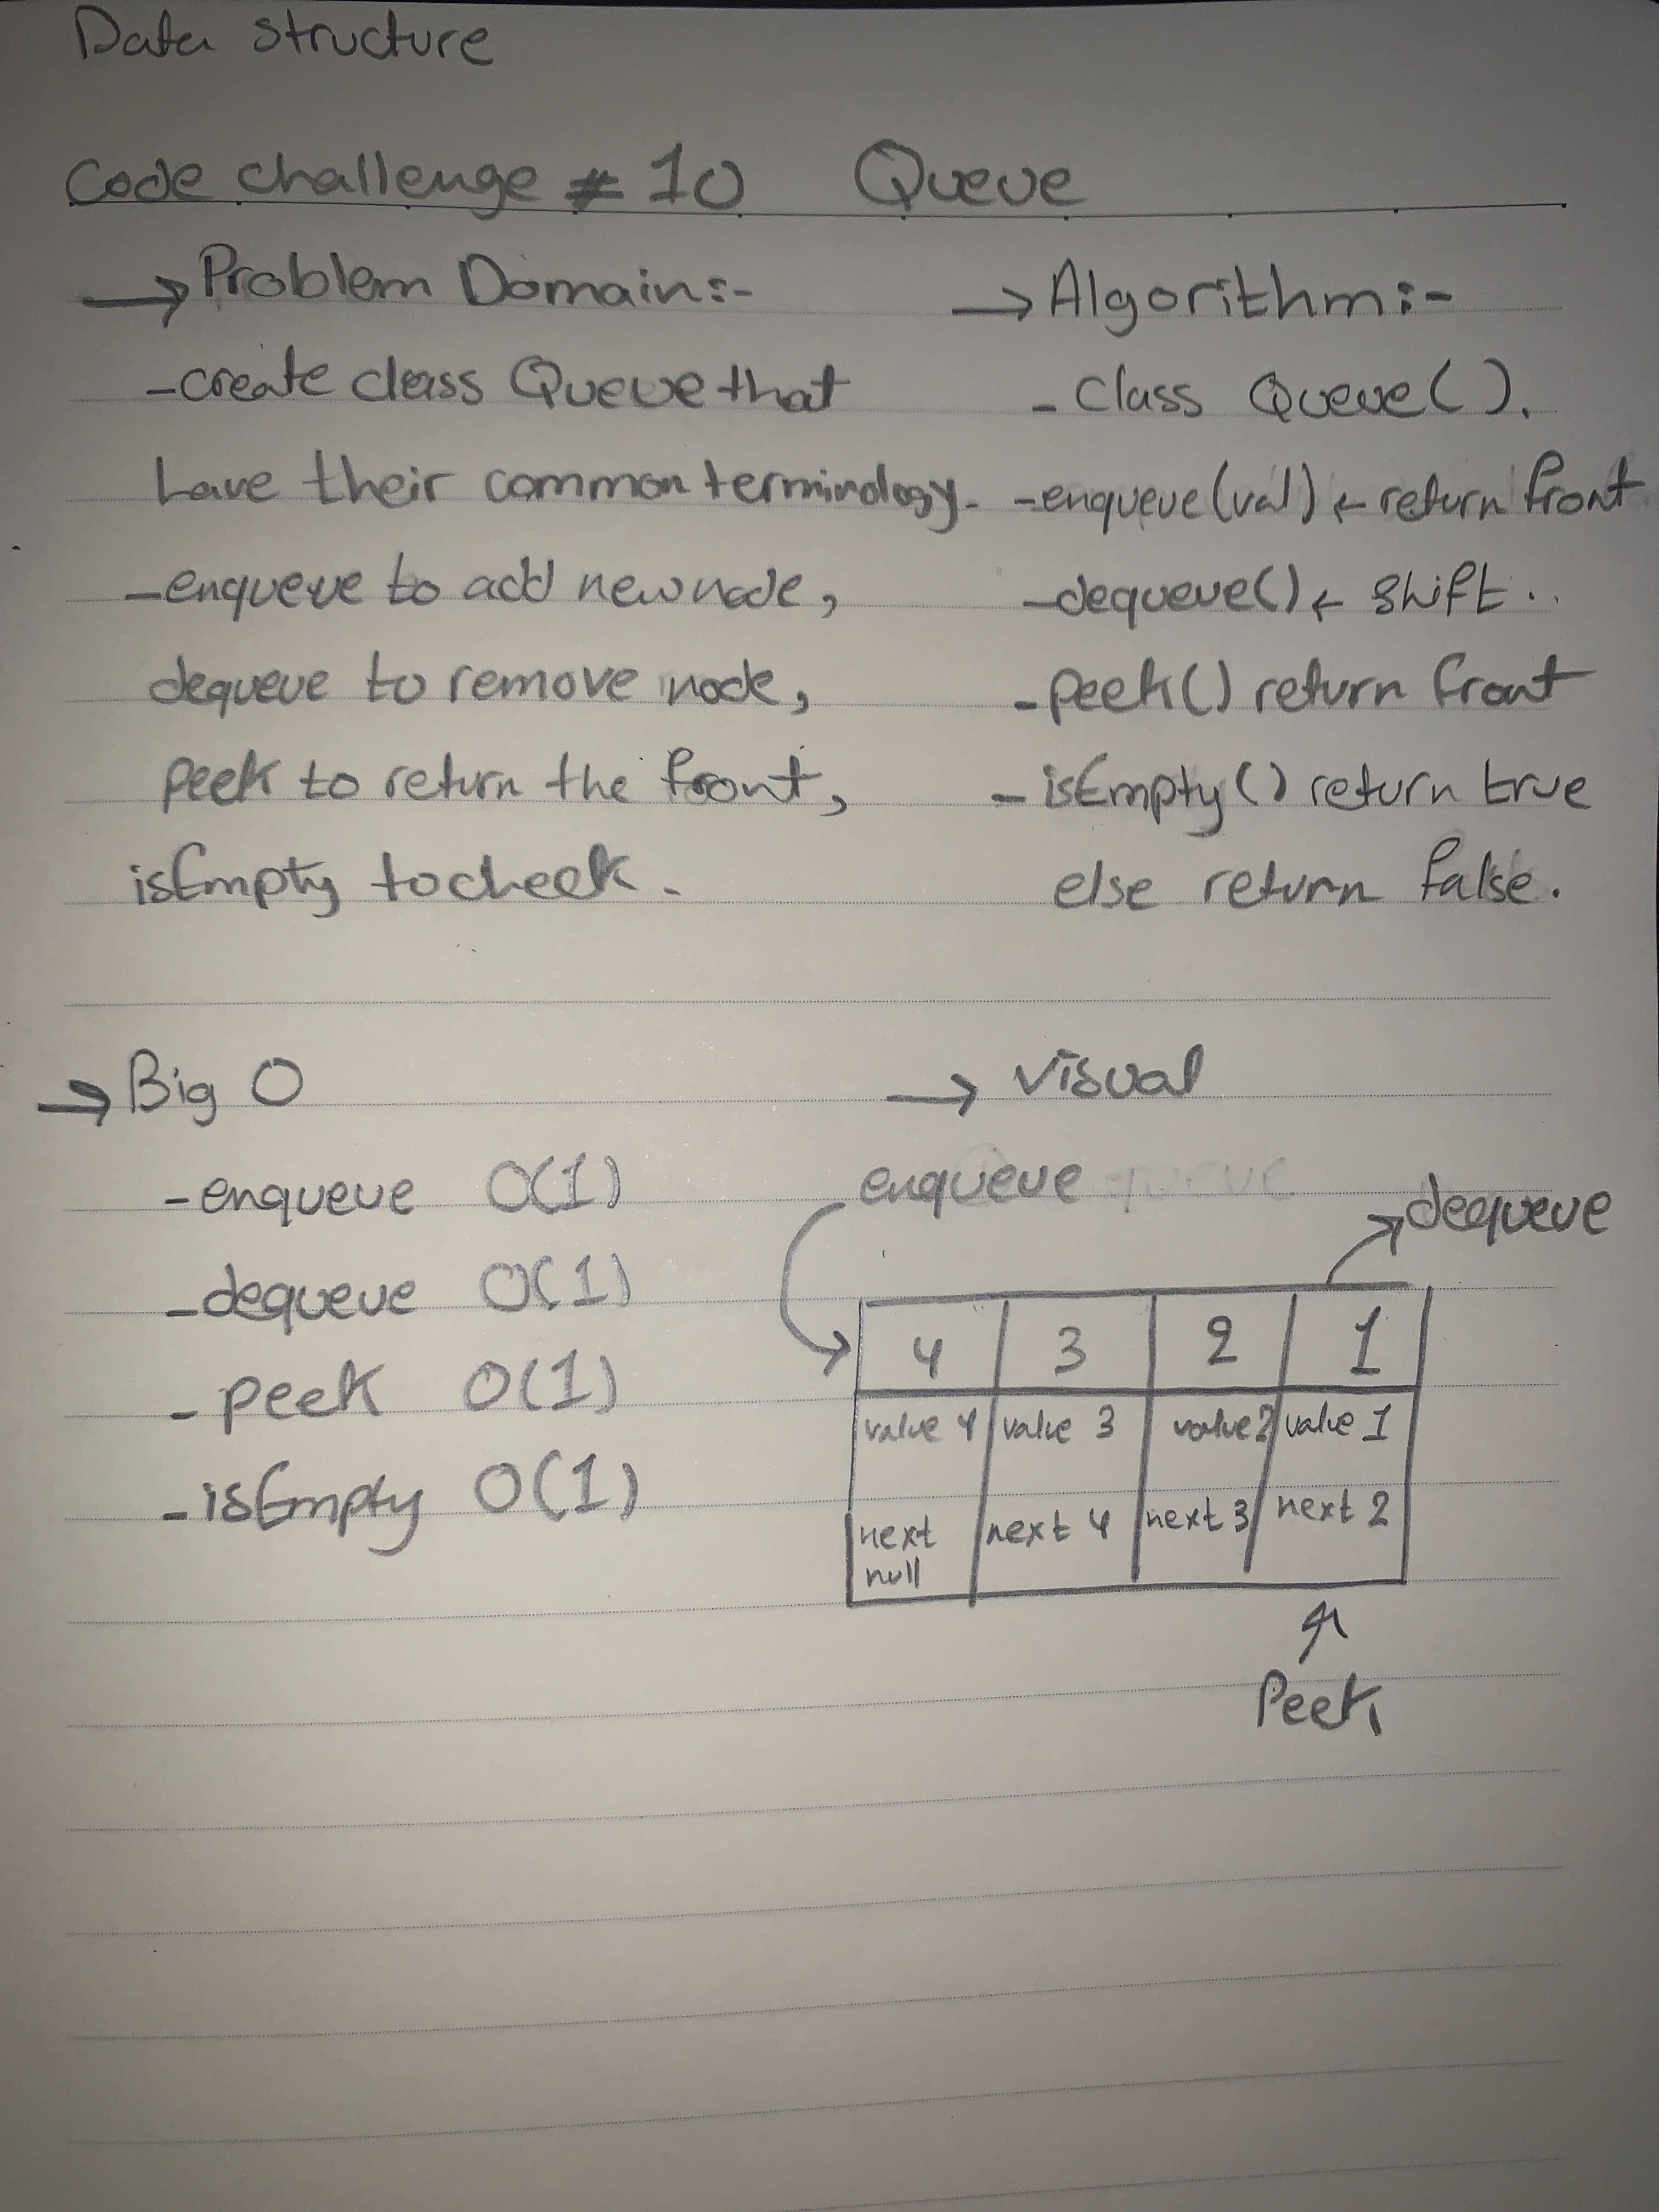 Data structure
Code challenge # 10 Queue
→ Problem Domain:-
- create class Queue that
have their common terminology.
- enqueue to add new node,
dequeue to remove node,
peek to return the front,
isEmpty to check.
→ Algorithm:-
- Class Queue().
- enqueue(val) ← return front
- dequeue() ← shift ..
- peek() return front
- isEmpty() return true
else return false.
→ Big O
- enqueue O(1)
- dequeue O(1)
- peek O(1)
- isEmpty O(1)
→ Visual
enqueue
dequeue
4 3 2 1
value 4 value 3 value 2 value 1
next null next 4 next 3 next 2
Peek